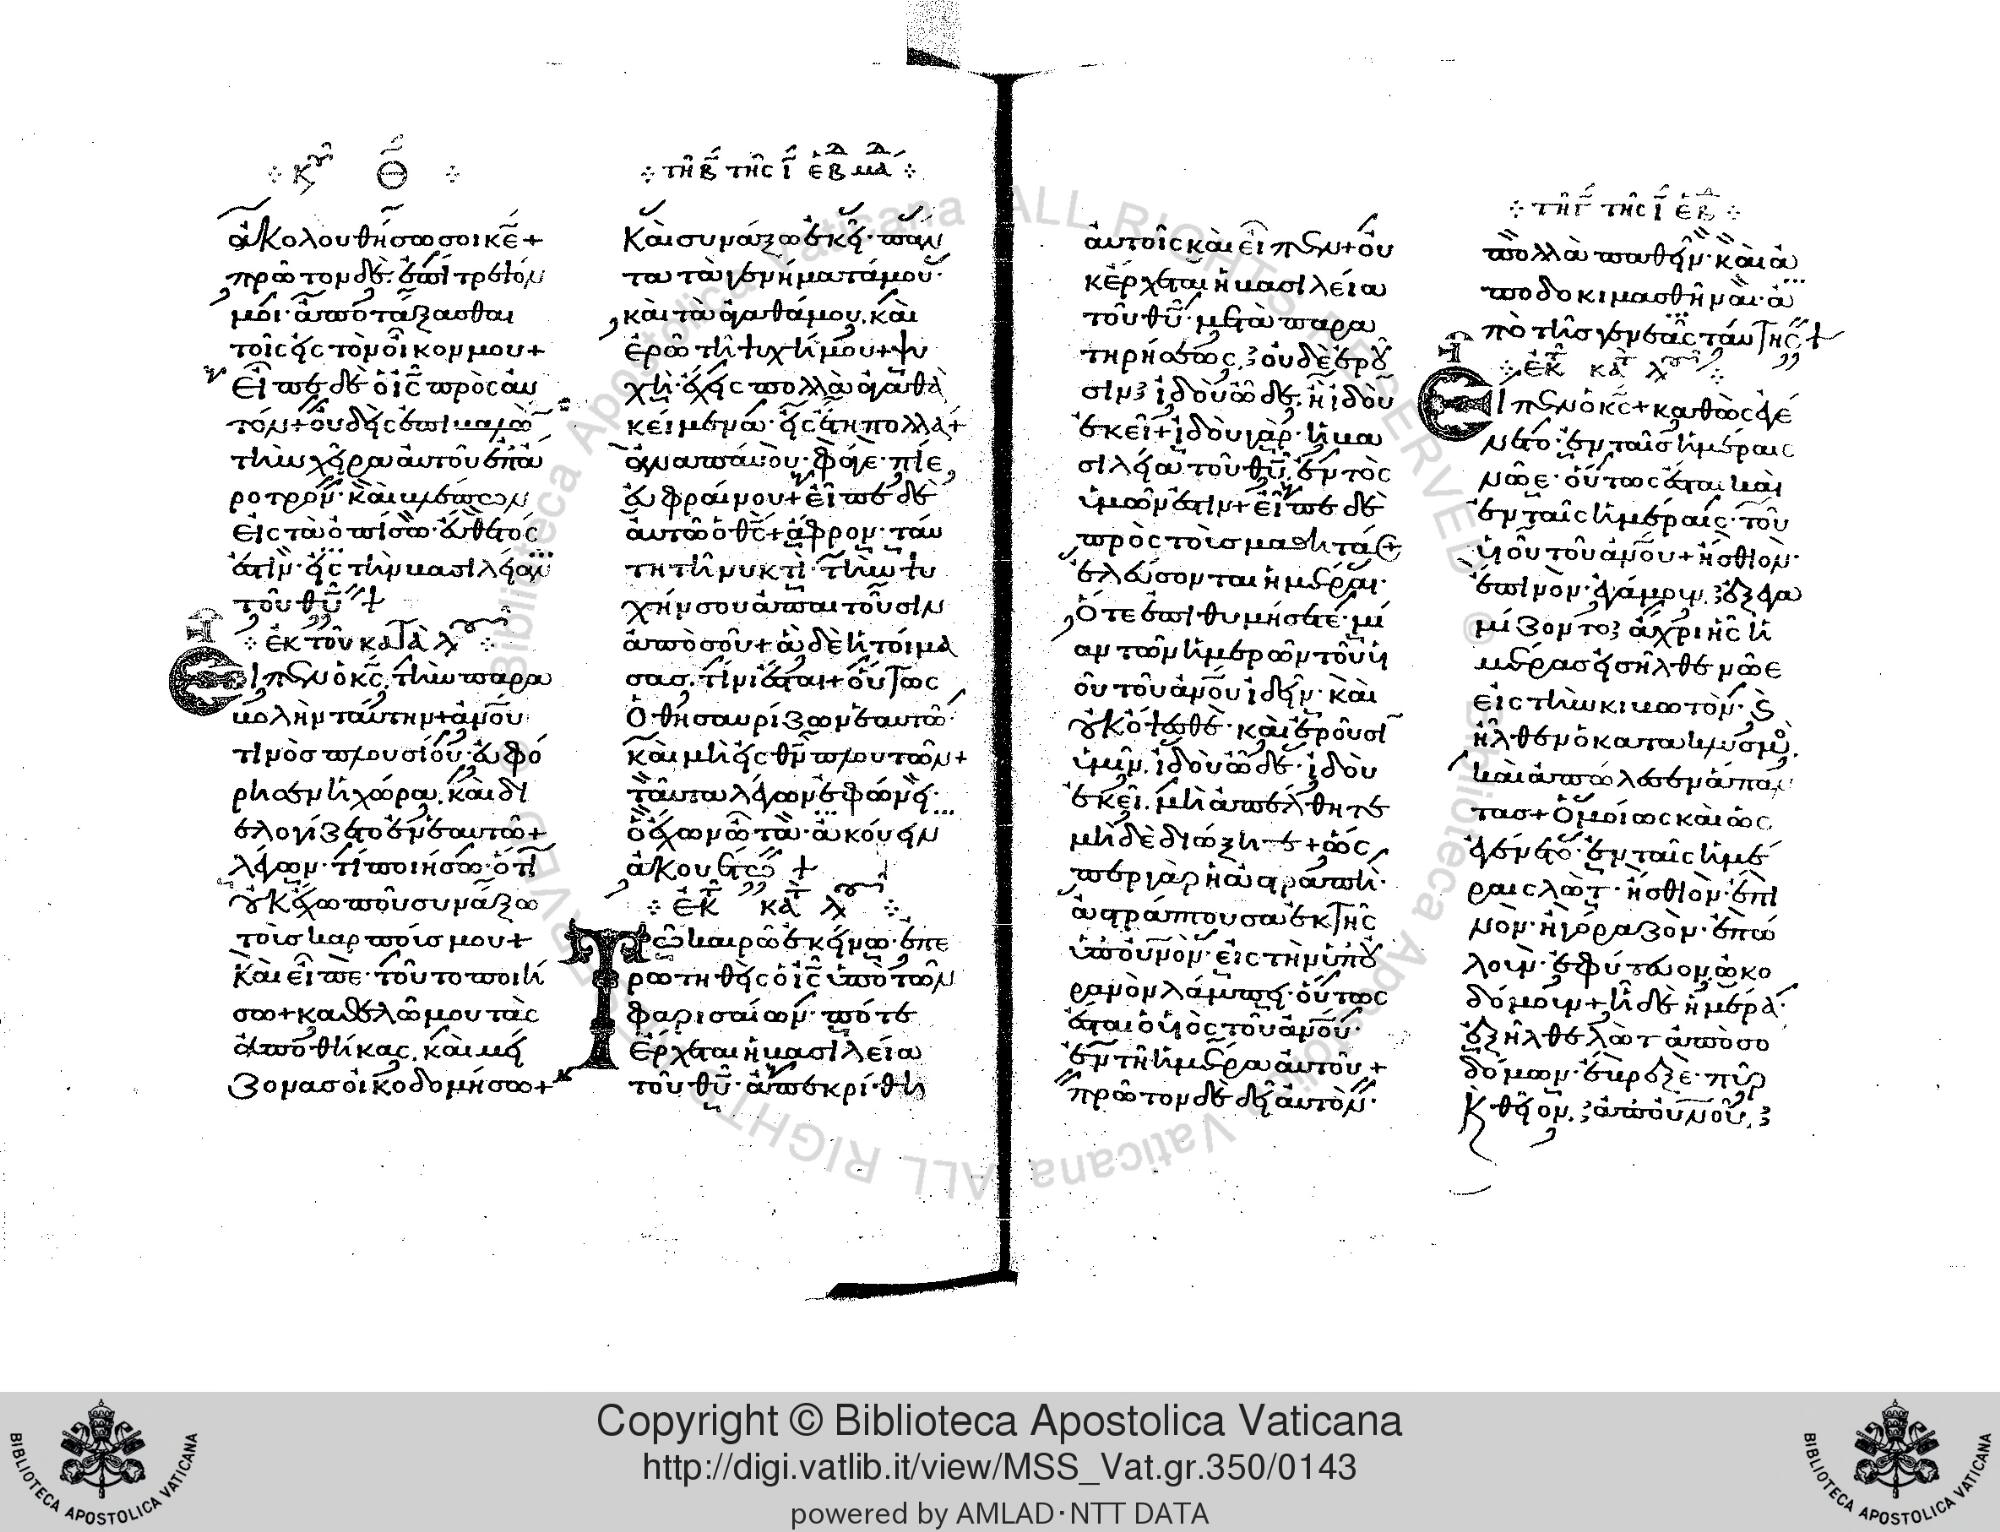 κυ θ
ἀκολουθήσω σοι κε +
πρῶτον δὲ ἐπίτρεψόν
μοι· ἀποτάξασθαι
τοῖς εἰς τὸν οἶκον μου +
εἶπε δὲ ὁ ις πρὸς αὐ
τόν + οὐδεὶς ἐπιβαλὼ
τὴν χεῖρα αὐτοῦ ἐπ' ἄ
ροτρον· καὶ βλέπων
εἰς τὰ ὀπίσω· εὔθετός
ἐστιν· εἰς τὴν βασιλείαν
τοῦ θυ +
ἐκ τοῦ κατὰ λγ
Εἶπεν ὁ κς, τὴν παρα
βολὴν ταύτην + ἀνου
τινὸς πλουσίου· εὐφό
ρησεν ἡ χώρα, καὶ δι
ελογίζετο ἐν ἑαυτῶ +
λέγων· τί ποιήσω· ὅτι
οὐκ ἔχω ποῦ συνάξω
τοὺς καρπούς μου +
καὶ εἶπε· τοῦτο ποιή
σω + καθελῶ μου τὰς
ἀποθήκας, καὶ μεί
ζονας οἰκοδομήσω +
τῆ β τῆς ι ἑβδμα
καὶ συνάξω ἐκεῖ· πάν
τα τὰ γενήματά μου·
καὶ τὰ ἀγαθά μου, καὶ
ἐρῶ τῆ ψυχῆ μου + ψυ
χὴ· ἔχεις πολλὰ ἀγαθὰ
κείμενα· εἰς ἔτη πολλά +
ἀναπαύου· φάγε· πίε,
εὐφραίνου + εἶπε δὲ
αὐτῶ ὁ θς + ἄφρον· ταύ
τη τῆ νυκτὶ· τὴν ψυ
χήν σου ἀπαιτοῦσιν
ἀπὸ σοῦ + ἃ δὲ ἡτοίμα
σας, τίνι ἔσται + οὕτως
ὁ θησαυρίζων ἑαυτῶ·
καὶ μὴ εἰς θν πλουτῶν +
ταῦτα λέγων ἐφώνει·
ὁ ἔχων ὦτα· ἀκούειν
ἀκουέτω +
ἐκ κατ λγ
Τῶ καιρῶ ἐκείνω· ἐπε
ρωτηθεὶς ὁ ις ὑπὸ τῶν
φαρισαίων· πότε
ἔρχεται ἡ βασιλεία
τοῦ θυ· ἀπεκρίθη
αὐτοῖς καὶ εἶπεν + οὐ
κ ἔρχεται ἡ βασιλεία
τοῦ θυ· μετὰ παρα
τηρήσεως, οὐδὲ ἐροῦ
σιν ἰδοὺ ὧδε, ἢ ἰδοὺ
ἐκεῖ + ἰδοὺ γὰρ· ἡ βα
σιλεία τοῦ θυ, ἐντὸς
ὑμῶν ἐστιν + εἶπε δὲ
πρὸς τοὺς μαθητάς +
ἐλεύσονται ἡμέραι·
ὅτε ἐπιθυμήσετε· μί
αν τῶν ἡμερῶν τοῦ υἱ
οῦ τοῦ ἀνου ἰδεῖν· καὶ
οὐκ ὄψεσθε· καὶ ἐροῦσι
ὑμῖν, ἰδοὺ ὧδε· ἰδοὺ
ἐκεῖ, μὴ ἀπέλθητε
μηδὲ διώξητε + ὥς
περ γὰρ ἡ ἀστραπὴ·
ἀστράπτουσα ἐκ τῆς
ὑπ' οὐνὸν· εἰς τὴν ὑπ' οὐ
ρανὸν λάμπει· οὕτως
ἔσται ὁ υἱὸς τοῦ ἀνου·
ἐν τῆ ἡμέρα αὐτοῦ +
πρῶτον δὲ δεῖ αὐτὸν·
τῆ γ τῆς ι ἑβδ
πολλὰ παθεῖν· καὶ ἀ
ποδοκιμασθῆναι· ἀ
πὸ τῆς γενεᾶς ταύτης +
ἐκ κατ λγ
Εἶπεν ὁ κς + καθὼς ἐγέ
νετο· ἐν ταῖς ἡμέραις
νῶε· οὕτως ἔσται καὶ
ἐν ταῖς ἡμέραις· τοῦ
υἱοῦ τοῦ ἀνου + ἤσθιον·
ἔπινον, ἐγάμουν, ἐξεγα
μίζοντο ἄχρι ἧς ἡ
μέρας εἰσῆλθε νῶε
εἰς τὴν κιβωτόν, καὶ
ἦλθεν ὁ κατακλυσμός,
καὶ ἀπώλεσεν ἅπαν
τας + ὁμοίως καὶ ὡς
ἐγένετο· ἐν ταῖς ἡμέ
ραις λὼτ· ἤσθιον· ἔπι
νον· ἠγόραζον· ἐπώ
λουν· ἐφύτευον, ὠκο
δόμουν + ἧ δὲ ἡμέρα
ἐξῆλθε λὼτ ἀπὸ σο
δόμων· ἔβρεξε· πῦρ
κ θεῖον, ἀπ' οὐνοῦ,
Copyright © Biblioteca Apostolica Vaticana
http://digi.vatlib.it/view/MSS_Vat.gr.350/0143
powered by AMLAD·NTT DATA
BIBLIOTECA APOSTOLICA VATICANA
BIBLIOTECA APOSTOLICA VATICANA